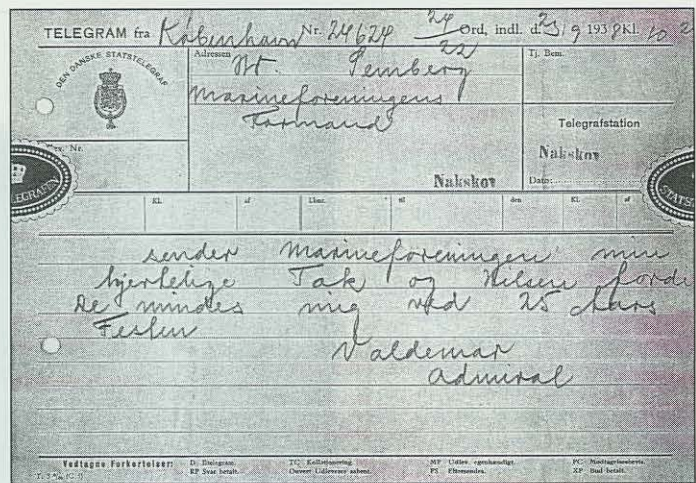 TELEGRAM fra København Nr. 24624 24/22 Ord, indl. d. 23/9 1938 Kl. 10
DEN DANSKE STATSTELEGRAF
Adressen
Tj. Bem.
Hr. Pemberg
Marineforeningens
Formand
Telegrafstation
Nr.
Nakskov
Nakskov
Date:
TELEGRAFEN
STATST
Kl. af Lbnr. til den Kl. af
sender Marineforeningen min
hjertelige Tak og Hilsen fordi
De mindes mig ved 25 Aars
Festen
Valdemar
Admiral
Vedtagne Forkortelser:
D: Iltelegram.
RP Svar betalt.
TC Kollationering.
Ouvert Udleveres aabent.
MP Udlev. egenhændigt.
FS Eftersendes.
PC Modtagelsesbevis.
XP Bud betalt.